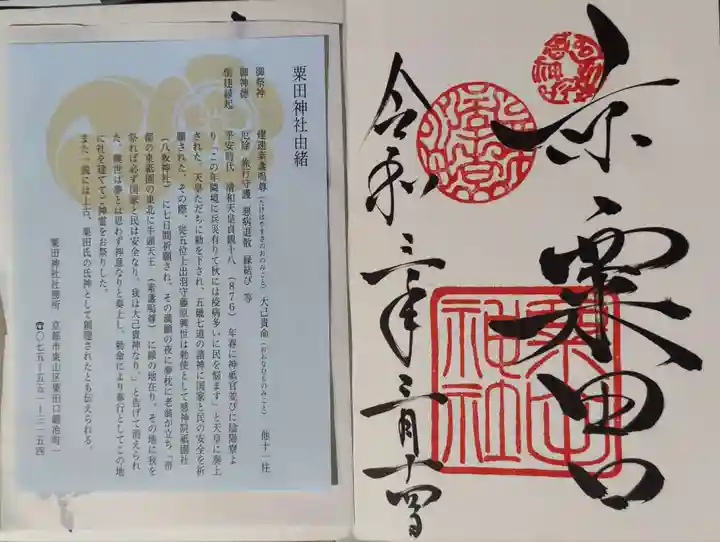 京粟田口
粟田神社
令和三年三月十四日
粟田神社由緒
御祭神 建速素盞嗚尊(たけはやすさのおのみこと) 大己貴命(おおなむちのみこと) 他十一柱
御神徳 厄除 旅行守護 悪病退散 縁結び 等
創建縁起
平安時代 清和天皇貞観十八(876)年春に神祇官並びに陰陽寮よ
り「この年隣境に兵災有りて秋には疫病多いに民を悩ます」と天皇に奏上
された。天皇ただちに勅を下され、五畿七道の諸神に国家と民の安全を祈
願された。その際、従五位上出羽守藤原興世は勅使として感神院祇園社
(八坂神社)に七日間祈願され、その満願の夜に夢枕に老翁が立ち「帝
都の東祇園の東北に牛頭天王(素盞嗚尊)に縁の地在り。その地に我を
祭れば必ず国家と民は安全なり。我は大己貴神なり。」と告げて消えられ
た。興世は夢とは思わず神意なりと奏上し、勅命により奉行としてこの地
に社を建ててご神霊をお祭りした。
また一説には上古、粟田氏の氏神として創建されたとも伝えられる。
粟田神社社務所 京都市東山区粟田口鍛冶町一
☎〇七五-五五一-三一五四